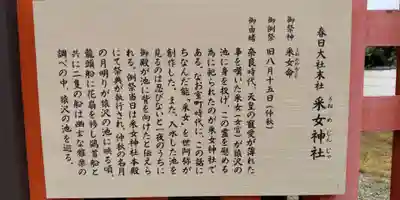 春日大社末社 采女神社
うねめじんじゃ
御祭神 采女命
御例祭 旧八月十五日(仲秋)
御由緒
奈良時代、天皇の寵愛が薄れた
事を嘆いた采女(女官)が猿沢の
池に身を投げ、この霊を慰める
為に祀られたのが采女神社で
ある。なお室町時代に、この話に
ちなんだ能「采女」を世阿弥が
制作した。また、入水した池を
見るのは忍びないと一夜のうちに
御殿が池に背を向けたと伝えら
れる。例祭当日は采女神社本殿
にて祭典が執行され、仲秋の名月
の月明りが猿沢の池に映る頃、
龍頭船に花扇を移し鷁首船と
共に二隻の船は幽玄な雅楽の
調べの中、猿沢の池を巡る。